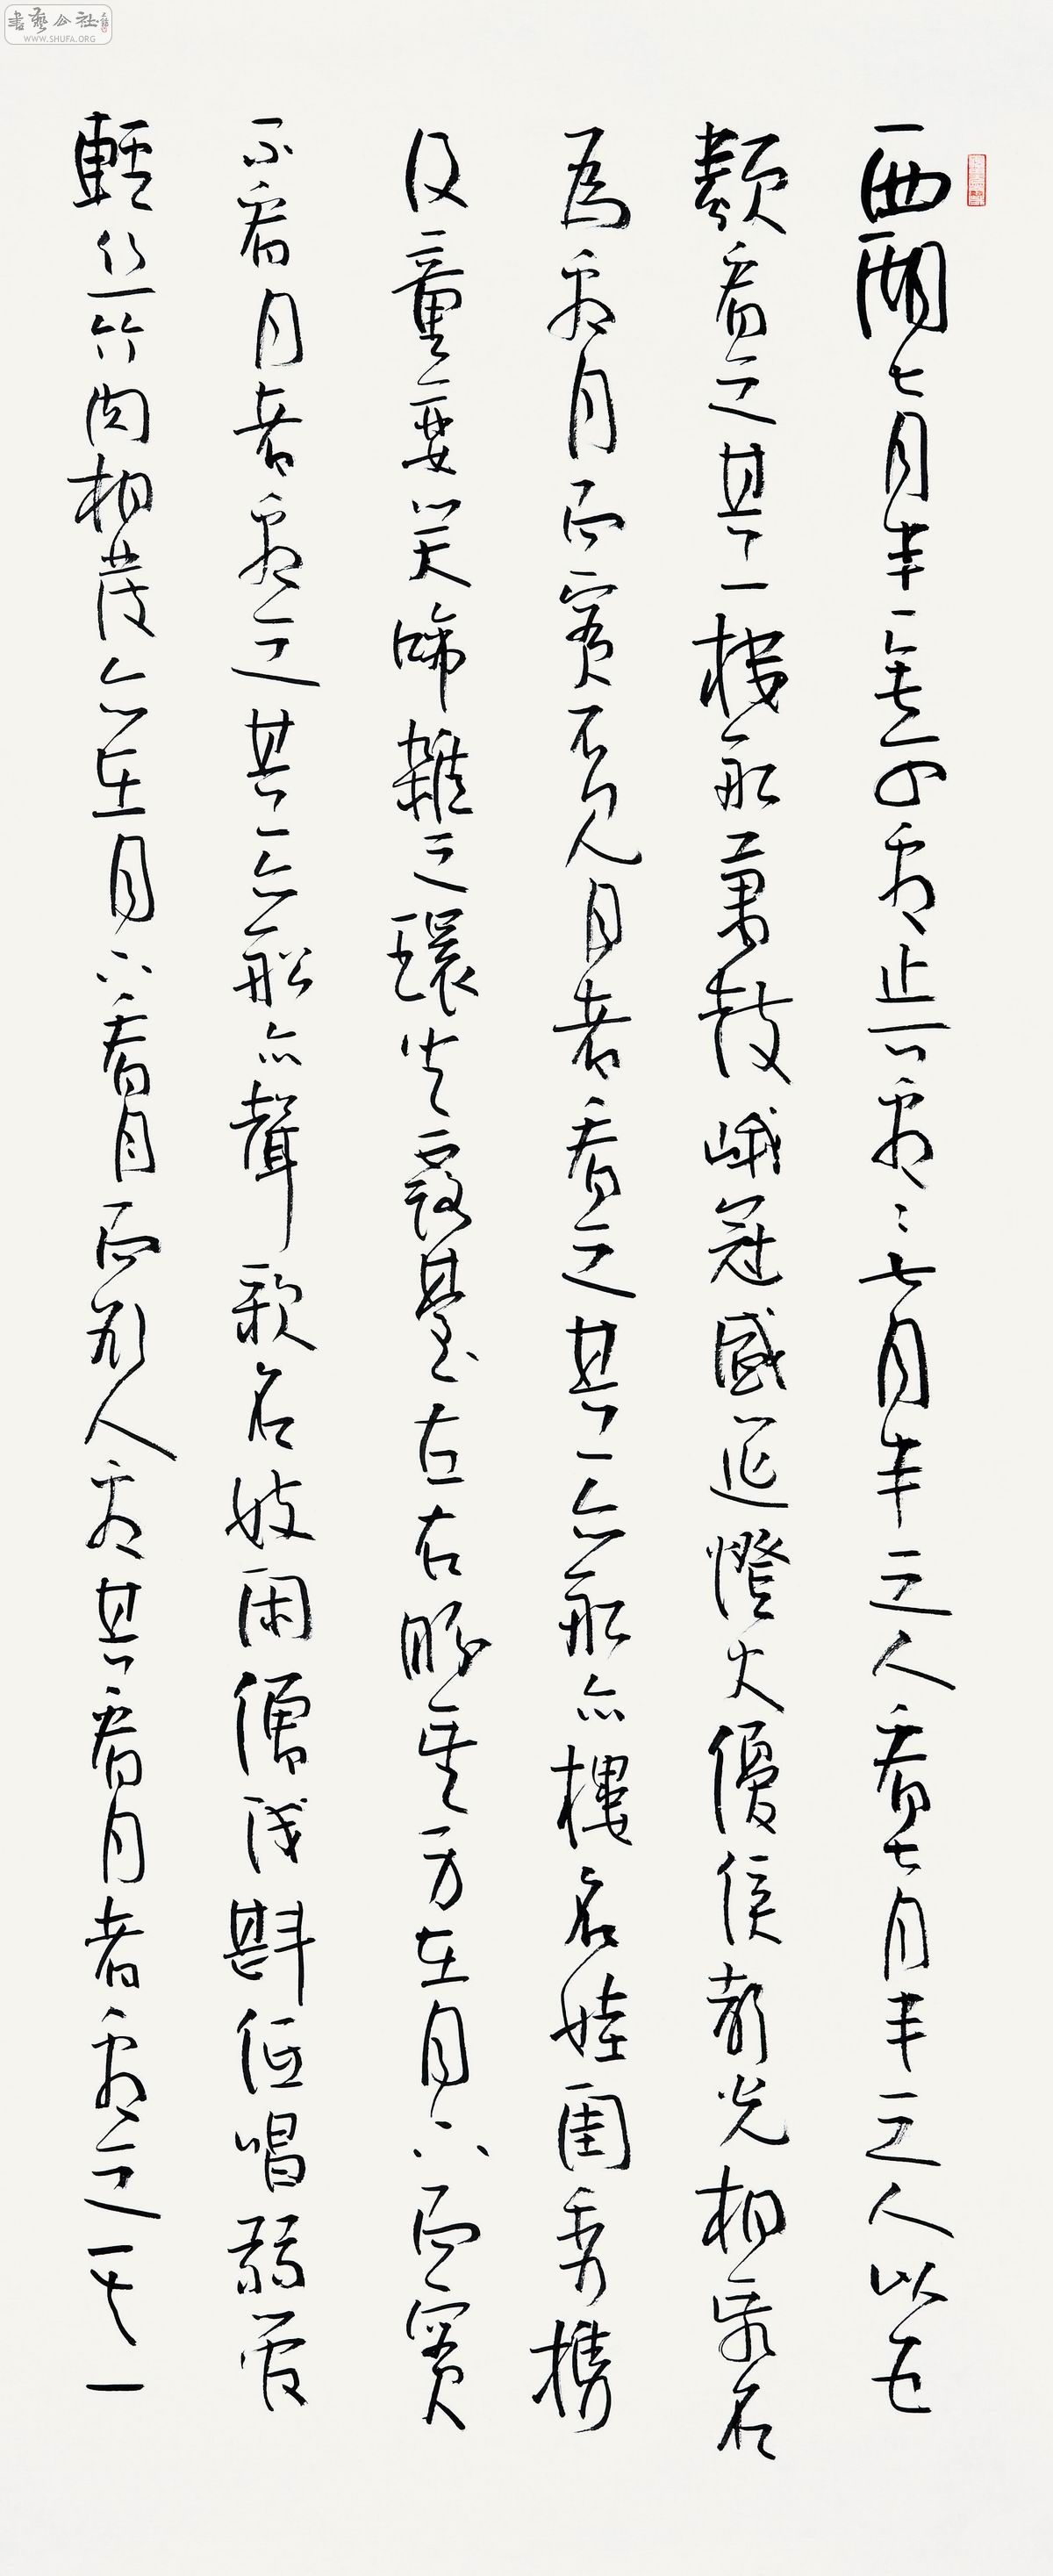 西湖七月半一無可看止可看看七月半之人看七月半之人以五
類看之其一樓船簫鼓峨冠盛筵燈火優傒聲光相亂名
為看月而實不見月者看之其一亦船亦樓名娃閨秀攜
及童孌笑啼雜之環坐露臺左右盼望身在月下而實
不看月者看之其一亦船亦聲歌名妓閑僧淺斟低唱弱管
輕絲竹肉相發亦在月下看月而欲人看其看月者看之其一
書藝公社
WWW.SHUFA.ORG